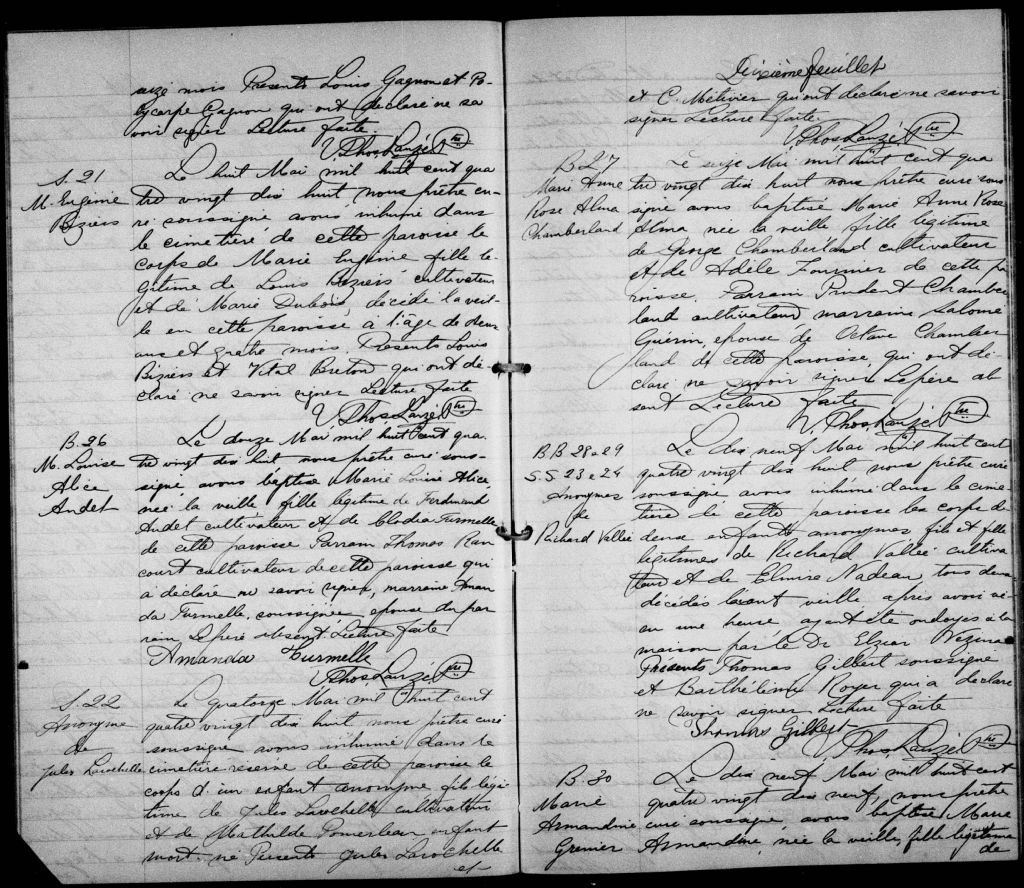 seize mois Presents Louis Gagnon et Po-
lycarpe Gagnon qui ont déclaré ne sa
voir signer Lecture faite.
V. Phos Lauzé Ptre
S. 21
M. Eugenie
Béziers
Le huit Mai mil huit cent qua
tre vingt dix huit nous prêtre cu-
ré soussigné avons inhumé dans
le cimetière de cette paroisse le
corps de Marie Eugénie fille lé-
gitime de Louis Béziers cultivateur
et de Marie Dubois, décédé la veil-
le en cette paroisse à l'âge de deux
ans et quatre mois. Presents Louis
Béziers et Vital Breton qui ont dé-
claré ne savoir signer Lecture faite
V. Phos Lauzé Ptre
B. 26
M. Louise
Alice
Audet
Le douze Mai mil huit cent qua-
tre vingt dix huit nous prêtre curé sous-
signé avons baptisé Marie Louise Alice
née la veille fille légitime de Ferdinand
Audet cultivateur et de Clodia Turmelle
de cette paroisse Parrain Thomas Ran
court cultivateur de cette paroisse qui
a déclaré ne savoir signer, marraine Aman
da Turmelle, soussignée, epouse du par
rain Le père absent. Lecture faite.
Amanda Turmelle
V. Phos Lauzé Ptre
S. 22
Anonyme
de
Jules Larochelle
Le quatorze Mai mil huit cent
quatre vingt dix huit nous prêtre curé
soussigné avons inhumé dans le
cimetière reservé de cette paroisse le
corps d'un enfant anonyme fils légi-
time de Jules Larochelle cultivateur
et de Mathilde Pomerleau enfant
mort-né Presents Jules Larochelle
et
Dixième feuillet
et C. Métivier qui ont declaré ne savoir
signer Lecture faite.
V. Phos Lauzé Ptre
B 27
Marie Anne
Rose Alma
Chamberland
Le seize Mai mil huit cent qua
tre vingt dix huit nous prêtre curé sous
signé avons baptisé Marie Anne Rose
Alma née la veille fille légitime
de George Chamberland cultivateur
et de Adèle Fournier de cette pa
roisse. Parrain Prudent Chamber
land cultivateur marraine Salomé
Guérin, epouse de Octave Chamber
land de cette paroisse, qui ont dé-
claré ne savoir signer Le père ab
sent Lecture faite
V. Phos Lauzé Ptre
B B 28 e 29
S. S. 23 e 24
Anonymes
de
Richard Vallée
Le dix neuf Mai mil huit cent
quatre vingt dix huit nous prêtre curé
soussigné avons inhumé dans le cime-
tière de cette paroisse les corps de
deux enfants anonymes fils et fille
légitimes de Richard Vallée cultiva
teur et de Elmire Nadeau, tous deux
décédés l'avant veille après avoir vé-
cu une heure ayant été ondoyés à la
maison par le Dr Elzear Vézina
Présents Thomas Gilbert soussigné
et Barthélémy Royer qui a déclaré
ne savoir signer Lecture faite
Thomas Gilbert
V. Phos Lauzé Ptre
B. 30
Marie
Armandine
Grenier
Le dix neuf Mai mil huit cent
quatre vingt dix neuf, nous prêtre
curé soussigné avons baptisé Marie
Armandine, née la veille, fille légitime
de